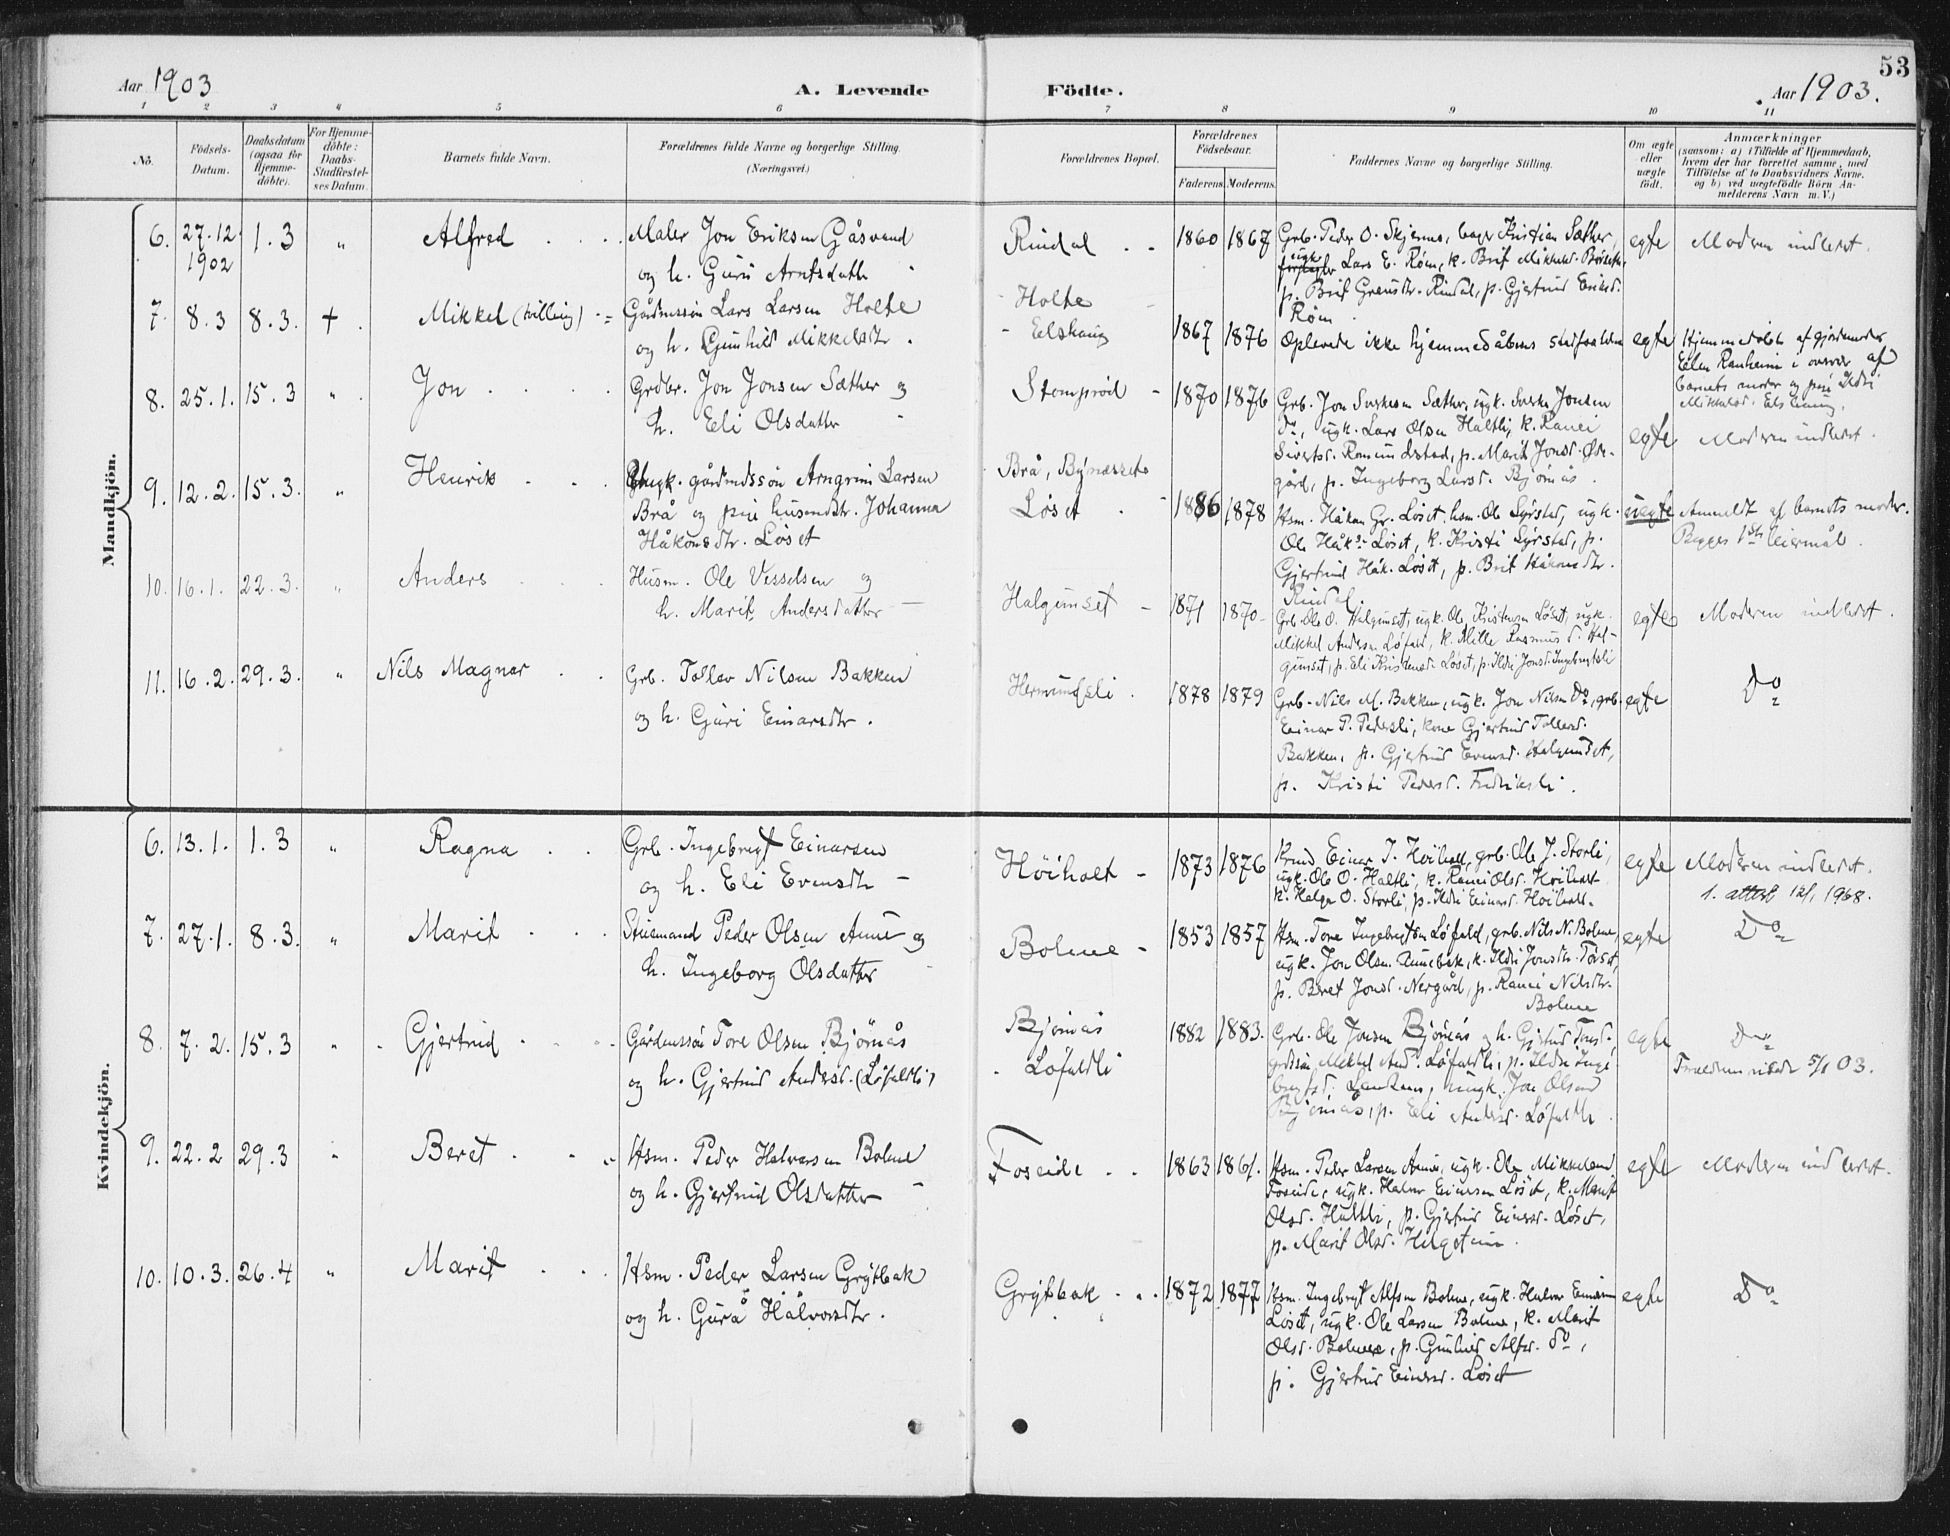 53
Aar 1903
A. Levende
Födte.
Aar 1903.
1 2 3 4 5 6 7 8 9 10 11
No.
Födsels-
Datum.
Daabsdatum
(ogsaa for
Hjemme-
döbte).
For Hjemme-
döbte:
Daabs-
Stadfæstel-
ses Datum.
Barnets fulde Navn.
Forældrenes fulde Navne og borgerlige Stilling.
(Næringsvei.)
Forældrenes Bopæl.
Forældrenes
Födselsaar.
Faderens.
Moderens.
Faddernes Navne og borgerlige Stilling.
Om ægte
eller
uægte
födt.
Anmærkninger
(saasom: a) i Tilfælde af Hjemmedaab,
hvem der har forrettet samme, med
Tilföielse af to Daabsvidners Navne,
og b) ved uægtefödte Börn An-
melderens Navn m. V.)
Mandkjön.
6. 27.12 1902 1.3 " Alfred
Maler Jon Eriksen Gåsvand
og h. Guri Arntsdatter
Rindal
1860 1867
Grb. Peder O. Skjermo, Kristian Sæther,
ugk. Lars E. Røen, k. Brit Mikkelsd.
p. Brit Rindal, p. Gjertrud Eriksd.
Røen
egte
Moderen indledet.
7. 8.3 8.3. + Mikkel (tvilling)
Gårdmssøn Lars Larsen Holte
og h. Gunhild Mikkelsdtr.
Holte
Elshaug
1867 1876
Oplevede ikke hjemmedåbens stadfæstelse
egte
Hjemmedøbt af gjordemoder
Ellen Ranheim i overvær af
barnets moder og pige Ildri
Mikkelsd. Elshaug.
8. 25.1. 15.3 " Jon
Grdbr. Jon Jonsen Sæther og
h. Eli Olsdatter
Stomprød
1870 1876
Grb. Jon Sæther, ugk. Jonsen
Do, ugk. Lars Olsen Haltli, k. Ranei
Sivertsd. Romundstad, p. Marit Jonsd. Øie-
gård, p. Ingeborg Larsd. Bjørnås
egte
Moderen indledet.
9. 12.2. 15.3. " Henrik
Ungk. gårdmdssøn Arngrim Larsen
Brå og pige husmdsdtr. Johanna
Håkonsdtr. Løset
Brå, Bynesset
Løset
1886 1878
Hsm. Håkon Gr. Løset, hsm. Ole Syrstad, ugk.
Ole Håks. Løset, k. Kristi Syrstad, p.
Gjertrud Håk. Løset, p. Brit Håkonsdtr.
Rindal.
uegte
Anmeldt af barnets moder.
Begges 1ste leiermål.
10. 16.1. 22.3. " Anders
Husm. Ole Vesselsen og
h. Marit Andersdatter
Halgunset
1871 1870
Grb. Ole O. Halgunset, ugk. Ole Kristensen Løset, ugk.
Mikkel Andersen Løfald, k. Mille Rasmusd. Hal-
gunset, p. Eli Kristensd. Løset, p. Ildri Jonsd. Ingebrigtsli
egte
Moderen indledet.
11. 16.2. 29.3. " Nils Magnar
Grb. Tollev Nilsen Bakken
og h. Guri Einarsdtr.
Hermundsli
1878 1879
Grb. Nils M. Bakken, ugk. Jon Nilsen Do, grb.
Einar P. Pedersli, kone Gjertrud Tollevsd.
Bakken, p. Gjertrud Evensd. Halgunset,
p. Kristi Pedersd. Fredriksli.
egte
Do
Kvindekjön.
6. 13.1. 1.3 " Ragna
Grb. Ingebrigt Einarsen
og h. Eli Evensdtr
Høiholt
1873 1876
Einar I. Høiholt, grb. Ole J. Storli,
ugk. Ole O. Haltli, k. Ranei Olsd. Høiholt
k. Helga O. Storli, p. Ildri Einarsd. Høiholt
egte
Moderen indledet.
1. attest 12/1 1968.
7. 27.1. 8.3. " Marit
Stuemand Peder Olsen Aune og
h. Ingeborg Olsdatter
Bolme
1853 1857
Hsm. Tore Ingebrigtsen Løfald, grb. Nils N. Bolme,
ugk. Jon Olsen Aunebak, k. Ildri Jonsdtr. Tøset,
p. Beret Jonsd. Nergård, p. Ranei Nilsdtr.
Bolme
egte
Do
8. 7.2. 15.3 " Gjertrud
Gårdmssøn Tore Olsen Bjørnås
og h. Gjertrud Andersd. (Løfaldli)
Bjørnås
Løfaldli
1882 1883.
Grb. Ole Jonsen Bjørnås og h. Gjertrud Toresd.,
Mikkel And. Løfaldli, p. Ildri Inge-
brigtsd. ungk. Jon Olsen
Bjørnås, p. Eli Andersd. Løfaldli
egte
Do
Forældrene viede 5/1 03.
9. 22.2 29.3 " Beret
Hsm. Peder Halvorsen Bolme
og h. Gjertrud Olsdatter
Foseide
1863 1861.
Hsm. Peder Larsen Aune, ugk. Ole Mikkelsen
Foseide, ugk. Halvor Einarsen Løset, k. Marit
Olsd. Haltli, p. Gjertrud Einarsd. Løset,
p. Marit Olsd. Helgetun.
egte
Moderen indledet.
10. 10.3. 26.4 " Marit
Hsm. Peder Larsen Grytbak
og h. Gurå Halvorsdtr.
Grytbak
1872 1877
Hsm. Ingebrigt Alfsen Bolme, ugk. Halvor Einarsen
Løset, ugk. Ole Larsen Bolme, k. Marit
Olsd. Bolme, p. Gunhild Alfsd. Do,
p. Gjertrud Einarsd. Løset
egte
Do